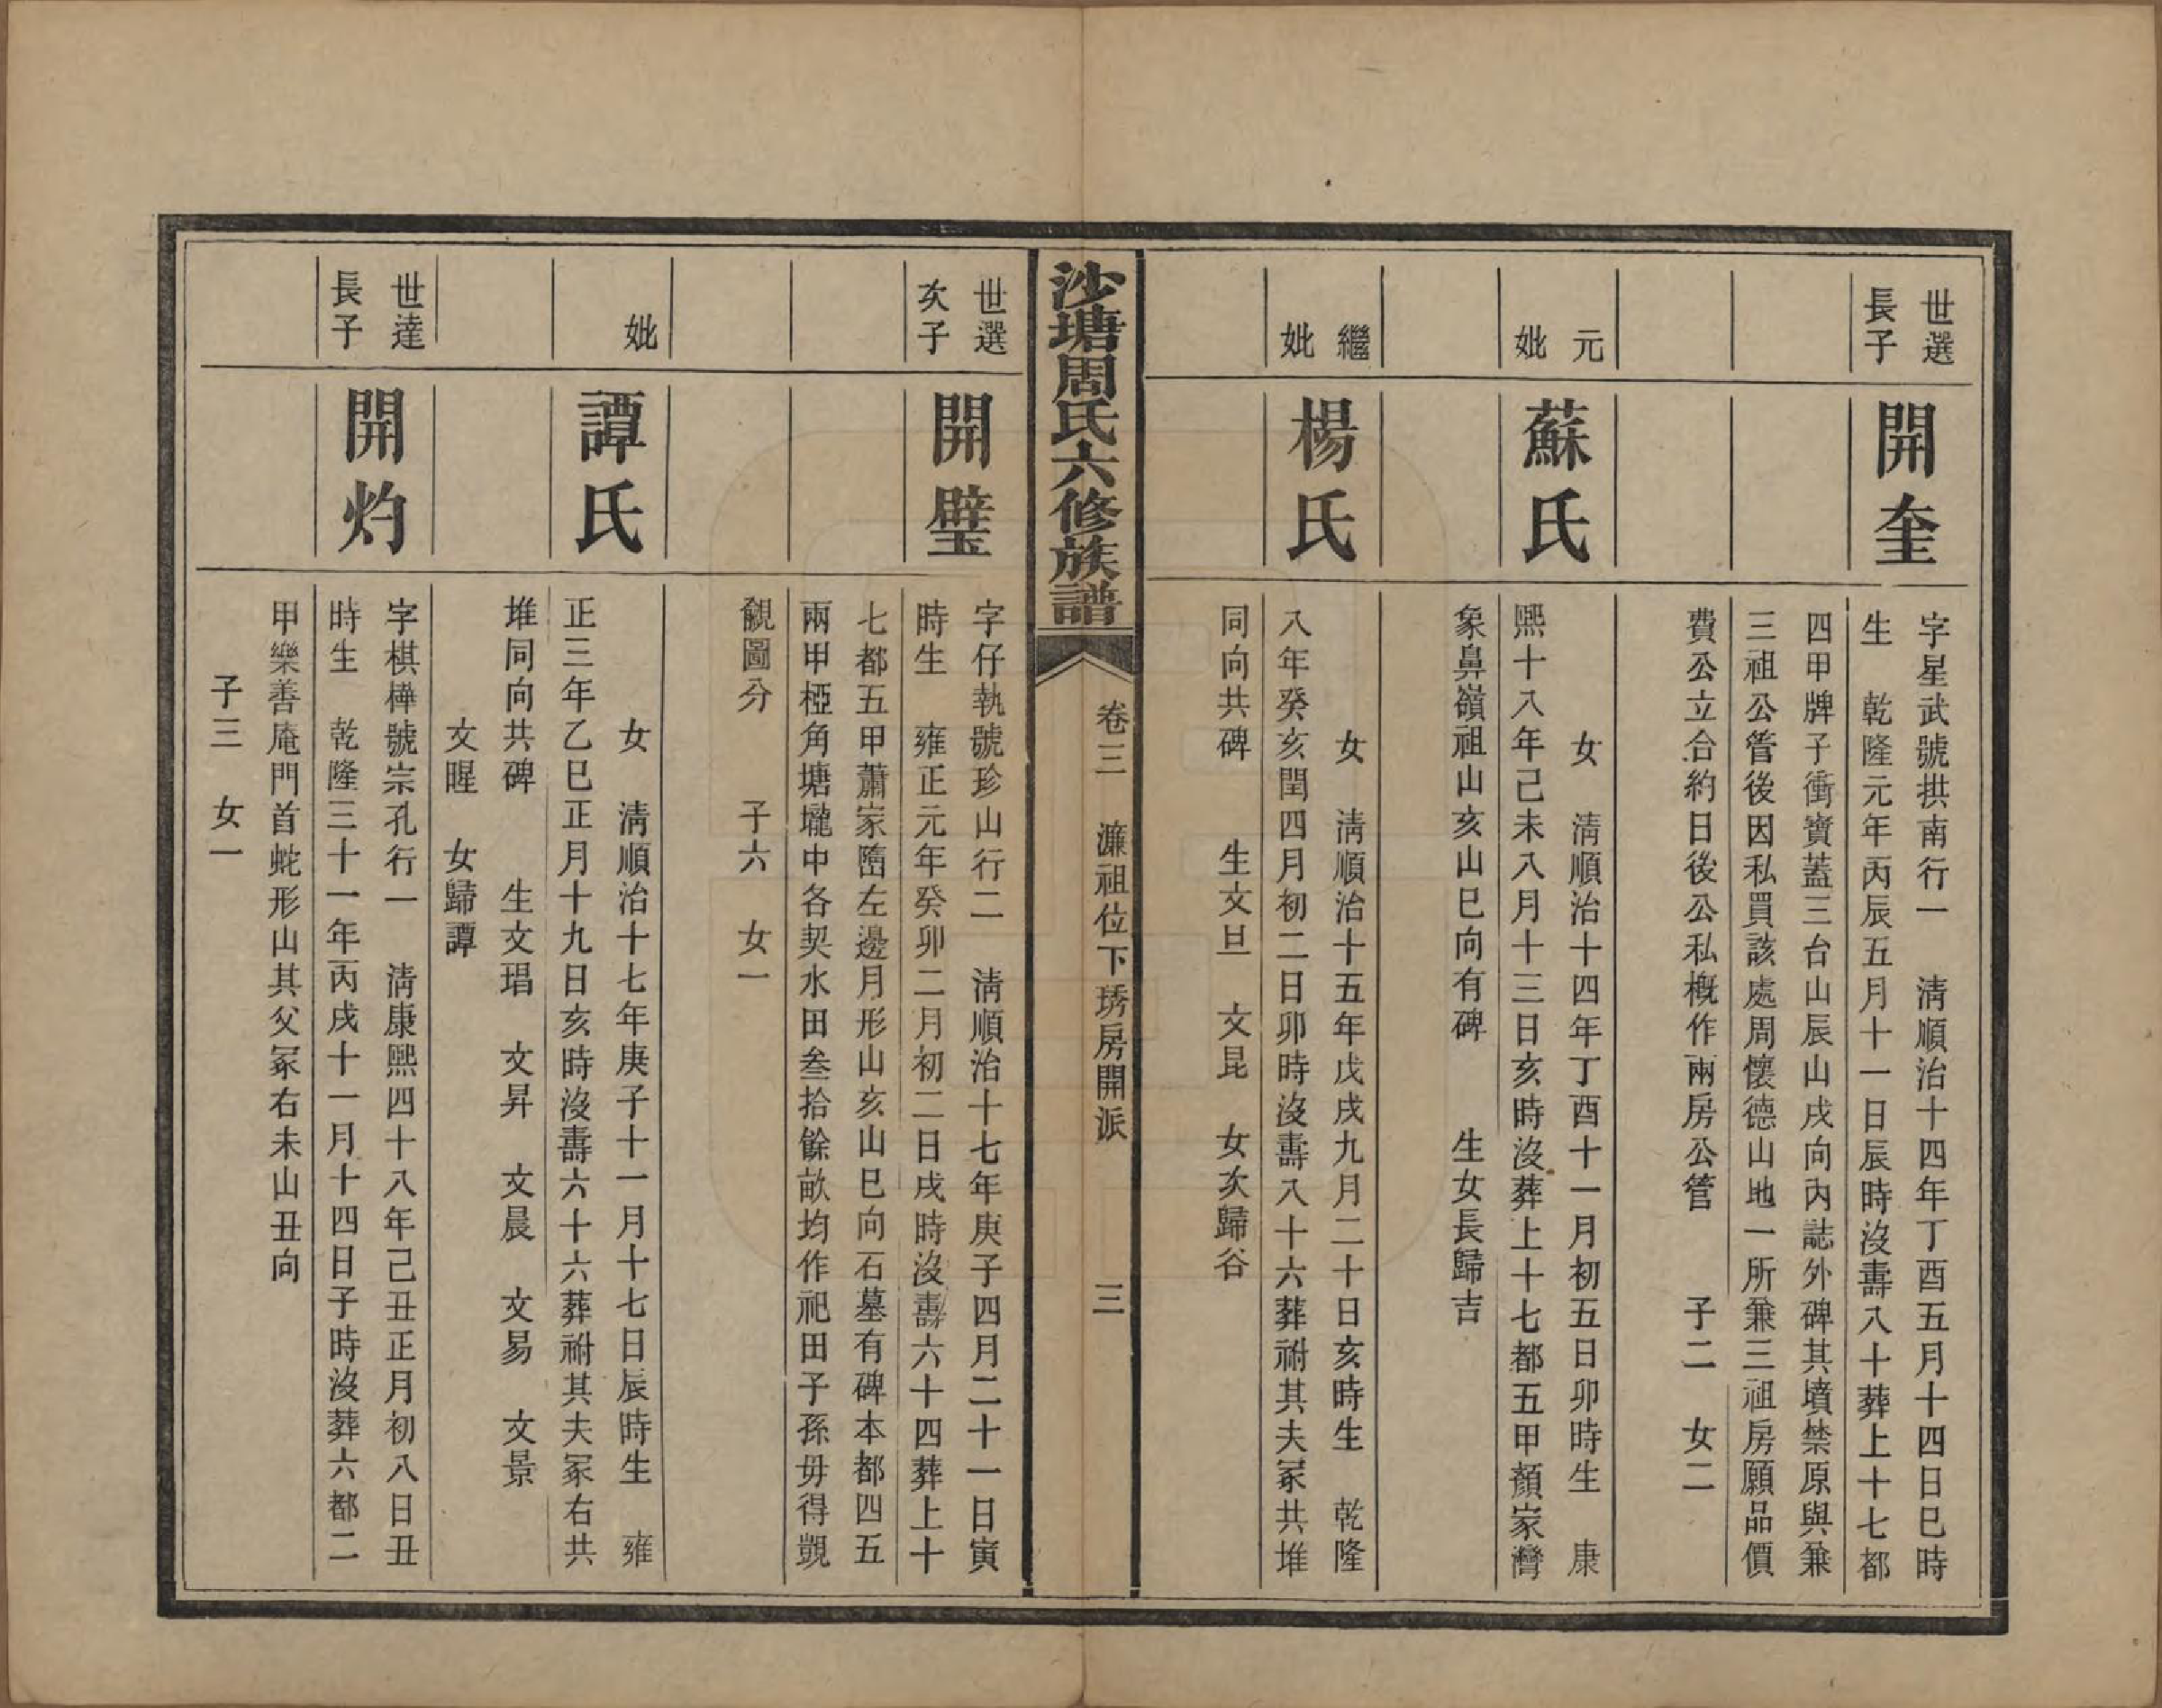 世選
長子
開奎
字星武號拱南行一　清順治十四年丁酉五月十四日巳時
生　乾隆元年丙辰五月十一日辰時沒壽八十葬上十七都
四甲牌子衝寶蓋三台山辰山戌向內誌外碑其墳禁原與兼
三祖公管後因私買該處周懷德山地一所兼三祖房願品價
費公立合約日後公私概作兩房公管　　子二　女二
元
妣
蘇氏
女　清順治十四年丁酉十一月初五日卯時生　康
熙十八年己未八月十三日亥時沒葬上十七都五甲顏家灣
象鼻嶺祖山亥山巳向有碑　　生女長歸吉
繼
妣
楊氏
女　清順治十五年戊戌九月二十日亥時生　乾隆
八年癸亥閏四月初二日卯時沒壽八十六葬祔其夫冢共堆
同向共碑　　生文旦　文昆　女次歸谷
沙塘周氏六修族譜
卷三　濂祖位下琇房開派　三
世選
次子
開璧
字仔執號珍山行二　清順治十七年庚子四月二十一日寅
時生　雍正元年癸卯二月初二日戌時沒壽六十四葬上十
七都五甲蕭家㙡左邊月形山亥山巳向石墓有碑本都四五
兩甲椏角塘壠中各契水田叁拾餘畝均作祀田子孫毋得覬
覦圖分　　子六　女一
妣
譚氏
女　清順治十七年庚子十一月十七日辰時生　雍
正三年乙巳正月十九日亥時沒壽六十六葬祔其夫冢右共
堆同向共碑　　生文琩　文昇　文晨　文易　文景
文暒　女歸譚
世達
長子
開灼
字棋樺號宗孔行一　清康熙四十八年己丑正月初八日丑
時生　乾隆三十一年丙戌十一月十四日子時沒葬六都二
甲樂善庵門首蛇形山其父冢右未山丑向
子三　女一